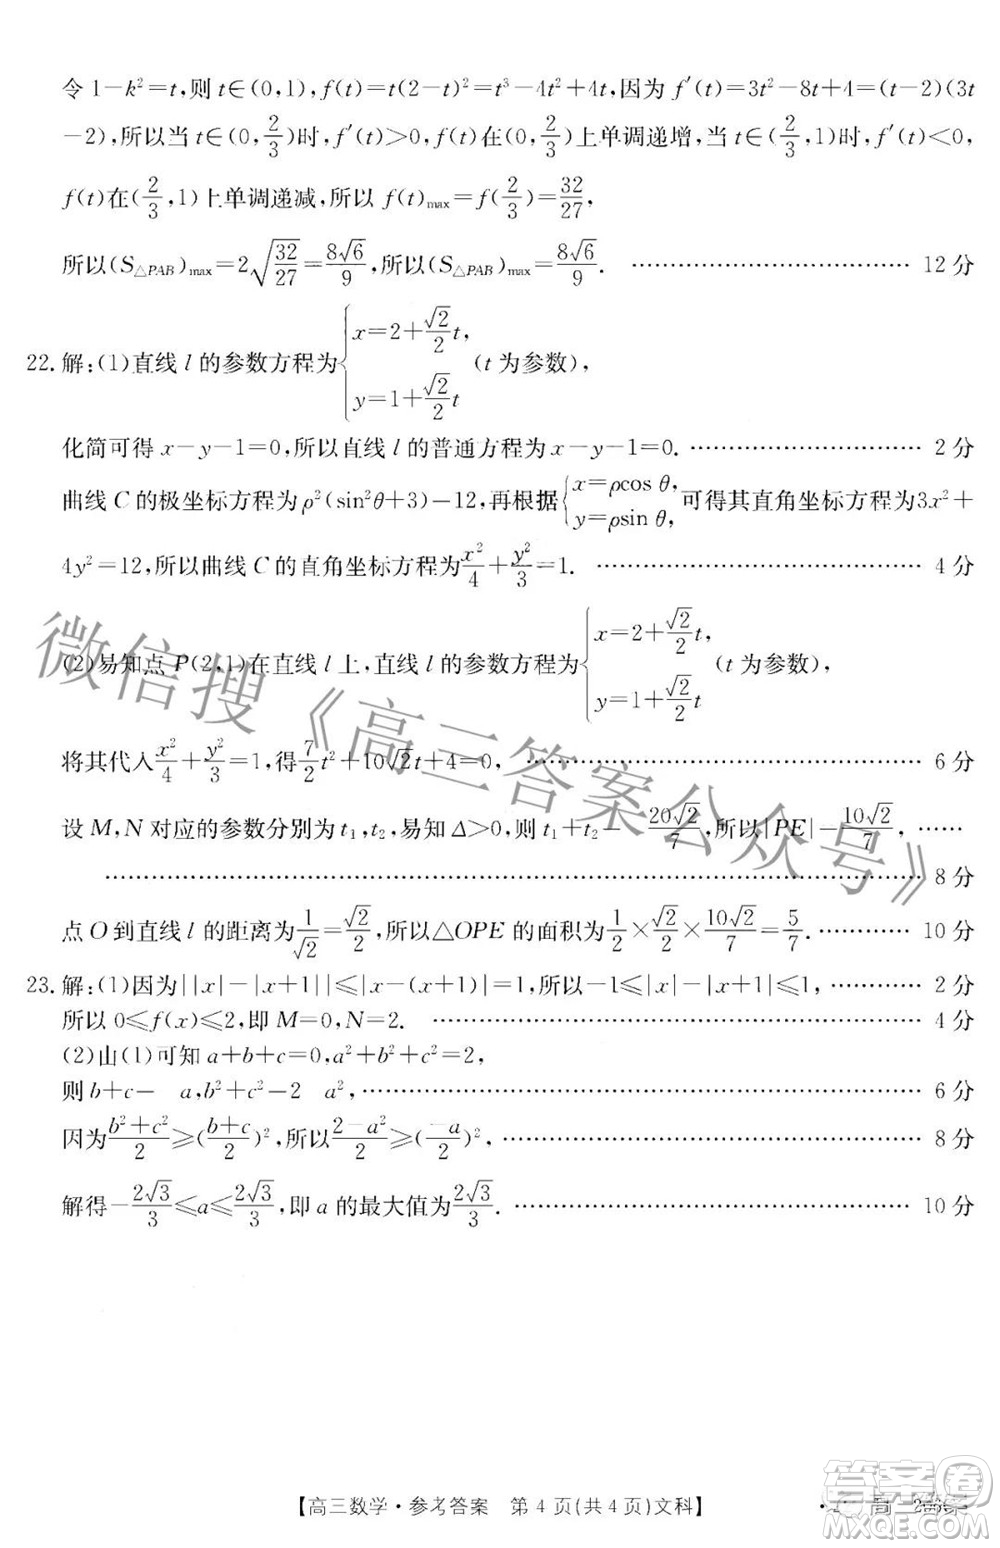 令1－k²=t,则 t∈(0,1),f(t)=t(2－t)²=t³－4t²+4t,因为 f′(t)=3t²－8t+4=(t－2)(3t
－2),所以当 t∈(0,2/3)时,f′(t)>0,f(t)在(0,2/3)上单调递增,当 t∈(2/3,1)时,f′(t)<0,
f(t)在(2/3,1)上单调递减,所以 f(t)max=f(2/3)=32/27,
所以(S△PAB)max=2√(32/27)=8√6/9,所以(S△PAB)max=8√6/9. ………………………… 12 分
22. 解:(1)直线 l 的参数方程为{x=2+(√2/2)t, y=1+(√2/2)t (t 为参数),
化简可得 x－y－1=0,所以直线 l 的普通方程为 x－y－1=0. ………………………… 2 分
曲线 C 的极坐标方程为 ρ²(sin²θ+3)－12,再根据{x=ρcos θ, y=ρsin θ, 可得其直角坐标方程为3x²+
4y²=12,所以曲线 C 的直角坐标方程为x²/4+y²/3=1. ………………………… 4 分
(2)易知点 P(2,1)在直线 l 上,直线 l 的参数方程为{x=2+(√2/2)t, y=1+(√2/2)t (t 为参数),
将其代入x²/4+y²/3=1,得7/2t²+10√2t+4=0, ………………………… 6 分
设 M,N 对应的参数分别为 t₁,t₂,易知 Δ>0,则 t₁+t₂－ 20√2/7,所以|PE|－10√2/7, ……
………………………… 8 分
点 O 到直线 l 的距离为1/√2=√2/2,所以△OPE 的面积为1/2×√2/2×10√2/7=5/7. ………… 10 分
23. 解:(1)因为||x|－|x+1||≤|x－(x+1)|=1,所以－1≤|x|－|x+1|≤1, ………… 2 分
所以 0≤f(x)≤2,即 M=0,N=2. ………………………… 4 分
(2)山(1)可知 a+b+c=0,a²+b²+c²=2,
则 b+c－ a,b²+c²－2 a², ………………………… 6 分
因为(b²+c²)/2≥((b+c)/2)²,所以(2－a²)/2≥(－a/2)², ………………………… 8 分
解得－2√3/3≤a≤2√3/3,即 a 的最大值为2√3/3. ………………………… 10 分
微信搜《高三答案公众号》
【高三数学·参考答案 第 4 页(共 4 页)文科】
答案圈
MXQE.COM